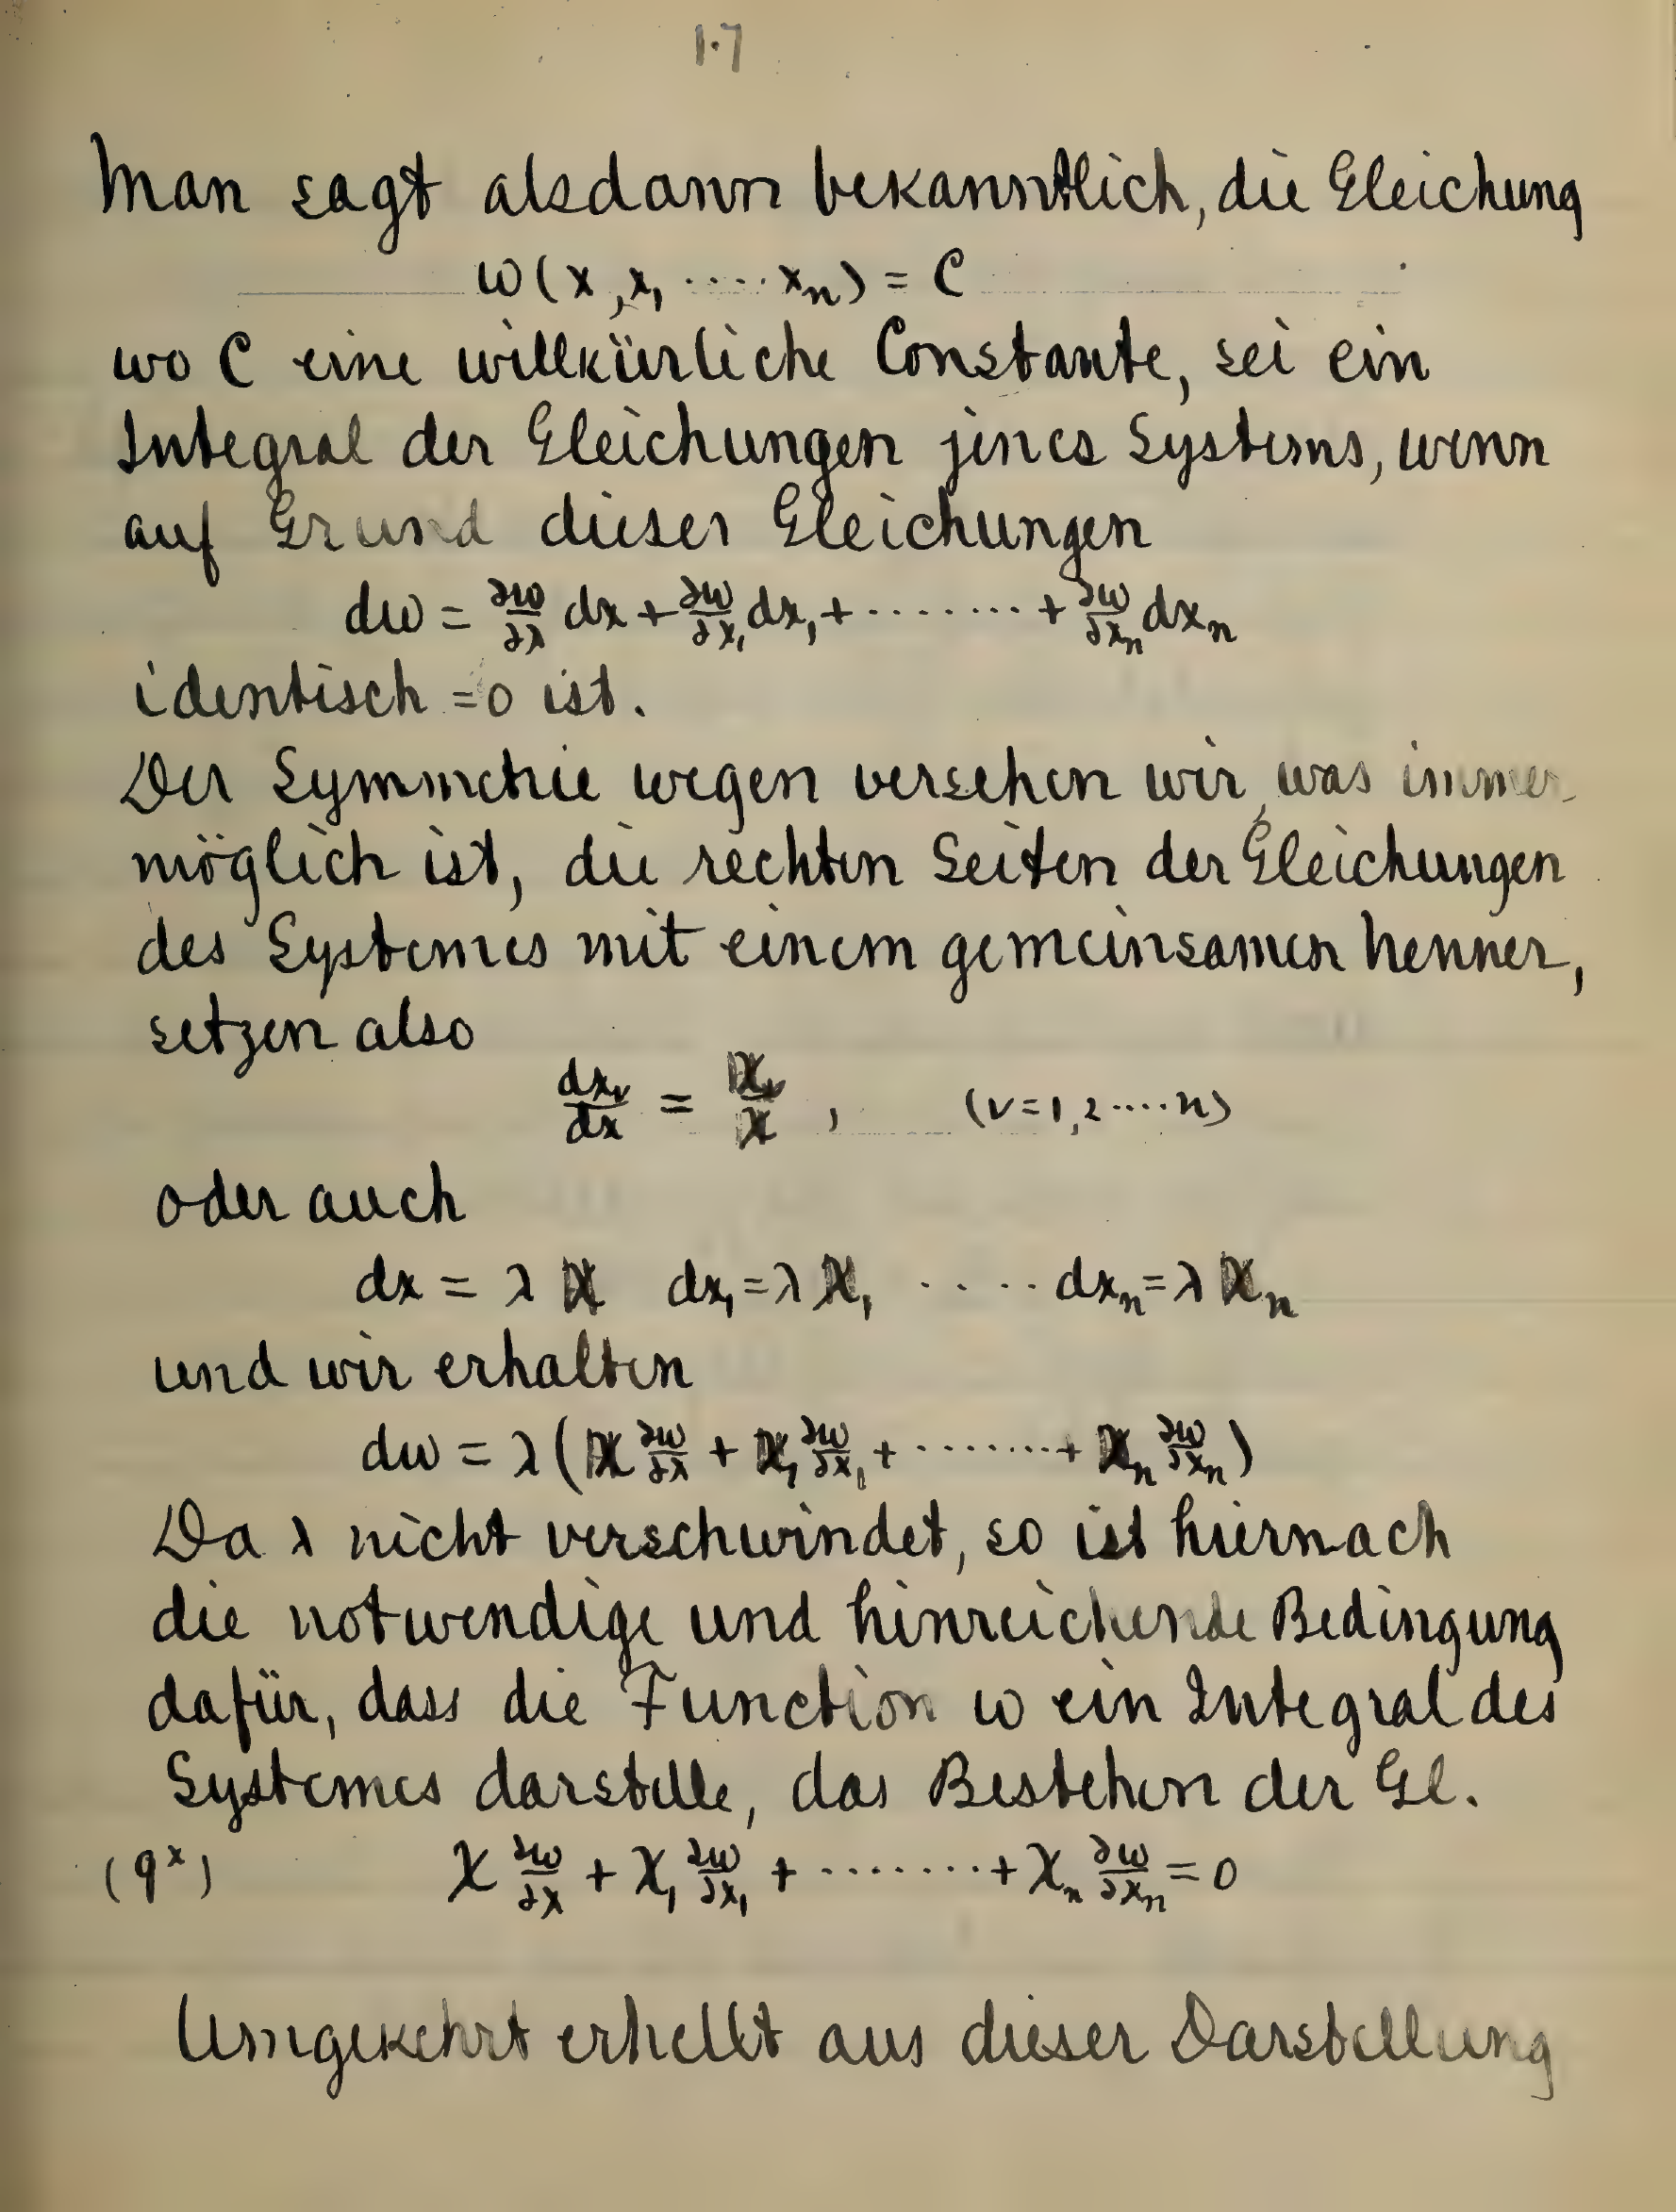 17
Man sagt alsdann bekanntlich, die Gleichung
w(x, x₁ ····· xₙ) = C
wo C eine willkürliche Constante, sei ein
Integral der Gleichungen jenes Systems, wenn
auf Grund dieser Gleichungen
dw = ∂w/∂x dx + ∂w/∂x₁ dx₁ + ········ + ∂w/∂xₙ dxₙ
identisch = 0 ist.
Der Symmetrie wegen versehen wir, was immer
möglich ist, die rechten Seiten der Gleichungen
des Systemes mit einem gemeinsamen Nenner,
setzen also
dxᵥ/dx = Xᵥ/X , (ν = 1, 2 ···· n)
oder auch
dx = λ X dx₁ = λ X₁ ····· dxₙ = λ Xₙ
und wir erhalten
dw = λ (X ∂w/∂x + X₁ ∂w/∂x₁ + ········ + Xₙ ∂w/∂xₙ)
Da λ nicht verschwindet, so ist hiernach
die notwendige und hinreichende Bedingung
dafür, dass die Function w ein Integral des
Systemes darstelle, das Bestehen der Gl.
(9ˣ) X ∂w/∂x + X₁ ∂w/∂x₁ + ········ + Xₙ ∂w/∂xₙ = 0
Umgekehrt erhellt aus dieser Darstellung